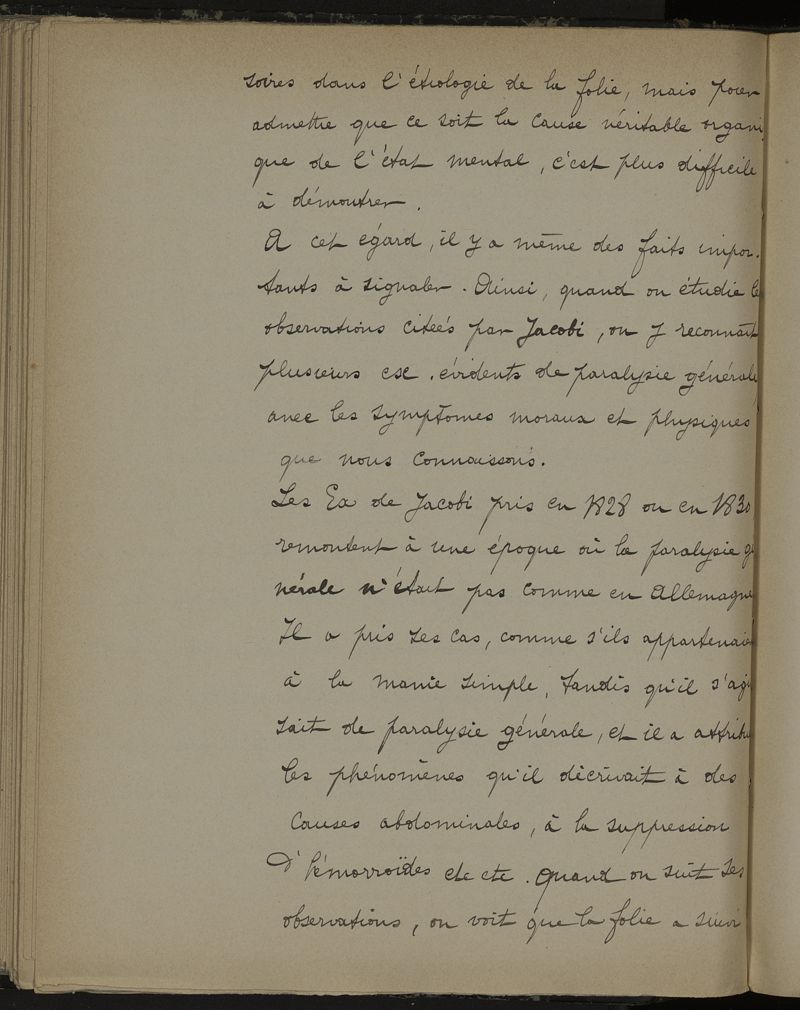 soires dans l'étiologie de la folie, mais pour
admettre que ce soit la cause véritable organi
que de l'état mental, c'est plus difficile
à démontrer.
A cet égard, il y a même des faits impor-
tants à signaler. Ainsi, quand on étudie le
observations citées par Jacobi, on y reconnaît
plusieurs ex. évidents de paralysie générale,
avec les symptômes moraux et physiques
que nous connaissons.
Les Ex de Jacobi pris en 1828 ou en 1830
remontent à une époque où la paralysie gé
nérale n'était pas comme en Allemagne
Il a pris ses cas, comme s'ils appartenai
à la manie simple, tandis qu'il s'agi
sait de paralysie générale, et il a attribu
les phénomènes qu'il décrivait à des
causes abdominales, à la suppression
d'hémorroïdes etc etc. Quand on suit ses
observations, on voit que la folie a suivi